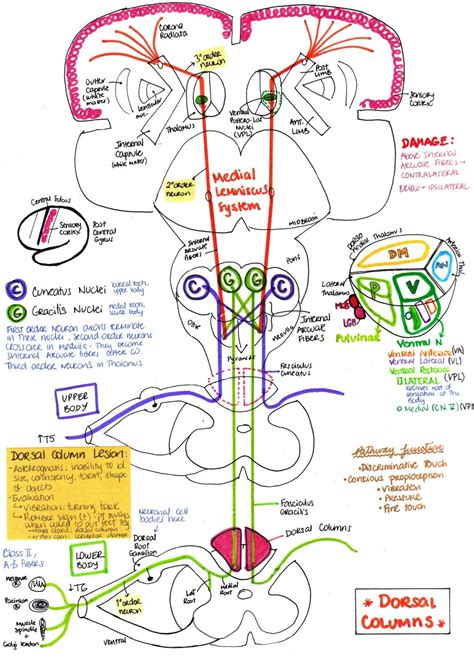 Corona
Radiata
3° order
neuron
Outter
Capsule
(white
matter)
Ventricular
Thalamus
Internal
Capsule
(white matter)
Ventral
Nuclei
(VPL)
Post
Limb
Ant.
Limb
Sensory
Cortex
DAMAGE:
Above Internal
Arcuate Fibers →
CONTRALATERAL
Below → Ipsilateral
2° order
neuron
Medial
Lemniscus
System
MIDBRAIN
Central Sulcus
Sensory
Cortex
Post
Central
Gyrus
Internal
Arcuate
Fibers
Pons
Dorso
Medial Thalamus
Anterior Thal
DM
AN
Lateral
Thalamus
P
V
MGB
LGB
Pulvinar
Ventral N
Ventral Anterior (VA)
Ventral Lateral (VL)
Ventral Posterior
Lateral (VPL)
sensation of the
Body
Medial (CN V) (VPM)
C Cuneatus Nuclei
upper body
G Gracilis Nuclei
lower body
First order neuron axons terminate
in these nuclei, second order neurons
crossover in medulla; they become
Internal arcuate fibers
Third order neurons in Thalamus
C G G C
Medulla
Internal
Arcuate
Fibers
Pyramids
Fasciculus
Cuneatus
UPPER
BODY
↑T5
Dorsal Column Lesion:
- Astereognosis: inability to id
size, consistency, form, shape
of objects
- Evaluation
- Vibration: tuning fork
- Romberg sign (+) pt sways
when asked to put feet tog
Neuronal cell
bodies here
Fasciculus
Gracilis
Pathway function
• Discriminative Touch
• Conscious proprioception
• Vibration
• Pressure
• Fine touch
Class II,
A-B Fibers
LOWER
BODY
Dorsal
Root
Ganglion
Dorsal Columns
↓T6
Muscle
Spindle
+
Golgi tendon
1° order
neuron
Lat
Root
Medial
Root
Ventral
* DORSAL
COLUMNS *